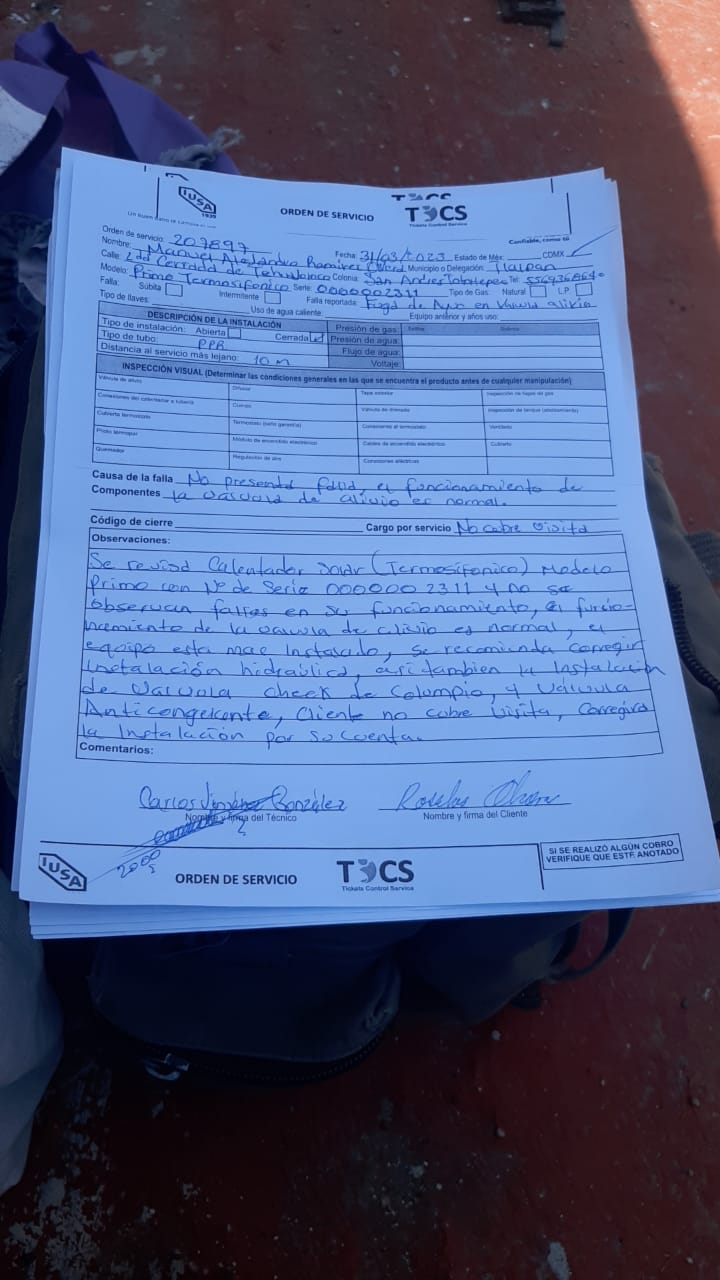 IUSA
1939
ORDEN DE SERVICIO
TCS
Tickets Control Service
Confiable, como tú
Orden de servicio: 207897
Fecha: 31/03/2023 Estado de Méx: CDMX
Nombre: Manuel Alejandro Ramirez Municipio o Delegación: Tlalpan
Calle: 2da Cerrada de Colonia: San Andres Totoltepec Tel:
Modelo: Primo Termosifonico Serie: 0000002311 Tipo de Gas: Natural LP
Falla: Súbita Intermitente Falla reportada: Fuga de Agua en Valvula alivio
Tipo de llaves: Uso de agua caliente: Equipo anterior y años uso:
DESCRIPCIÓN DE LA INSTALACIÓN
Tipo de instalación: Abierta Cerrada
Tipo de tubo: PPR
Distancia al servicio más lejano: 10 m
Presión de gas:
Presión de agua:
Flujo de agua:
Voltaje:
INSPECCIÓN VISUAL (Determinar las condiciones generales en las que se encuentra el producto antes de cualquier manipulación)
Válvula de alivio Difusor Tapa exterior Inspección de fugas de gas
Conexiones del calentador a tubería Cuerpo Válvula de drenado
Cubierta termostato Termostato (sello garantía) Conexiones al termostato Venteado
Piloto termopar Módulo de encendido electrónico Cables de encendido electrónico Cubierta
Quemador Regulación de aire Conexiones eléctricas
Causa de la falla No presenta falla, el funcionamiento de
Componentes la valvula de alivio es normal.
Código de cierre Cargo por servicio No cobre visita
Observaciones:
Se revisó Calentador Solar (Termosifonico) Modelo
Primo con Nº de Serie 0000002311 y no se
observan fallas en su funcionamiento, el funcio-
namiento de la valvula de alivio es normal, el
equipo esta mal instalado, se recomienda corregir
instalación hidraulica, asi tambien la Instalación
de Valvula check de Columpio, y Válvula
Anticongelante, Cliente no cubre Visita, Corregira
la Instalación por su cuenta.
Comentarios:
Carlos Jiménez González
Nombre y firma del Técnico
Nombre y firma del Cliente
IUSA
ORDEN DE SERVICIO
TCS
Tickets Control Service
SI SE REALIZÓ ALGÚN COBRO
VERIFIQUE QUE ESTÉ ANOTADO